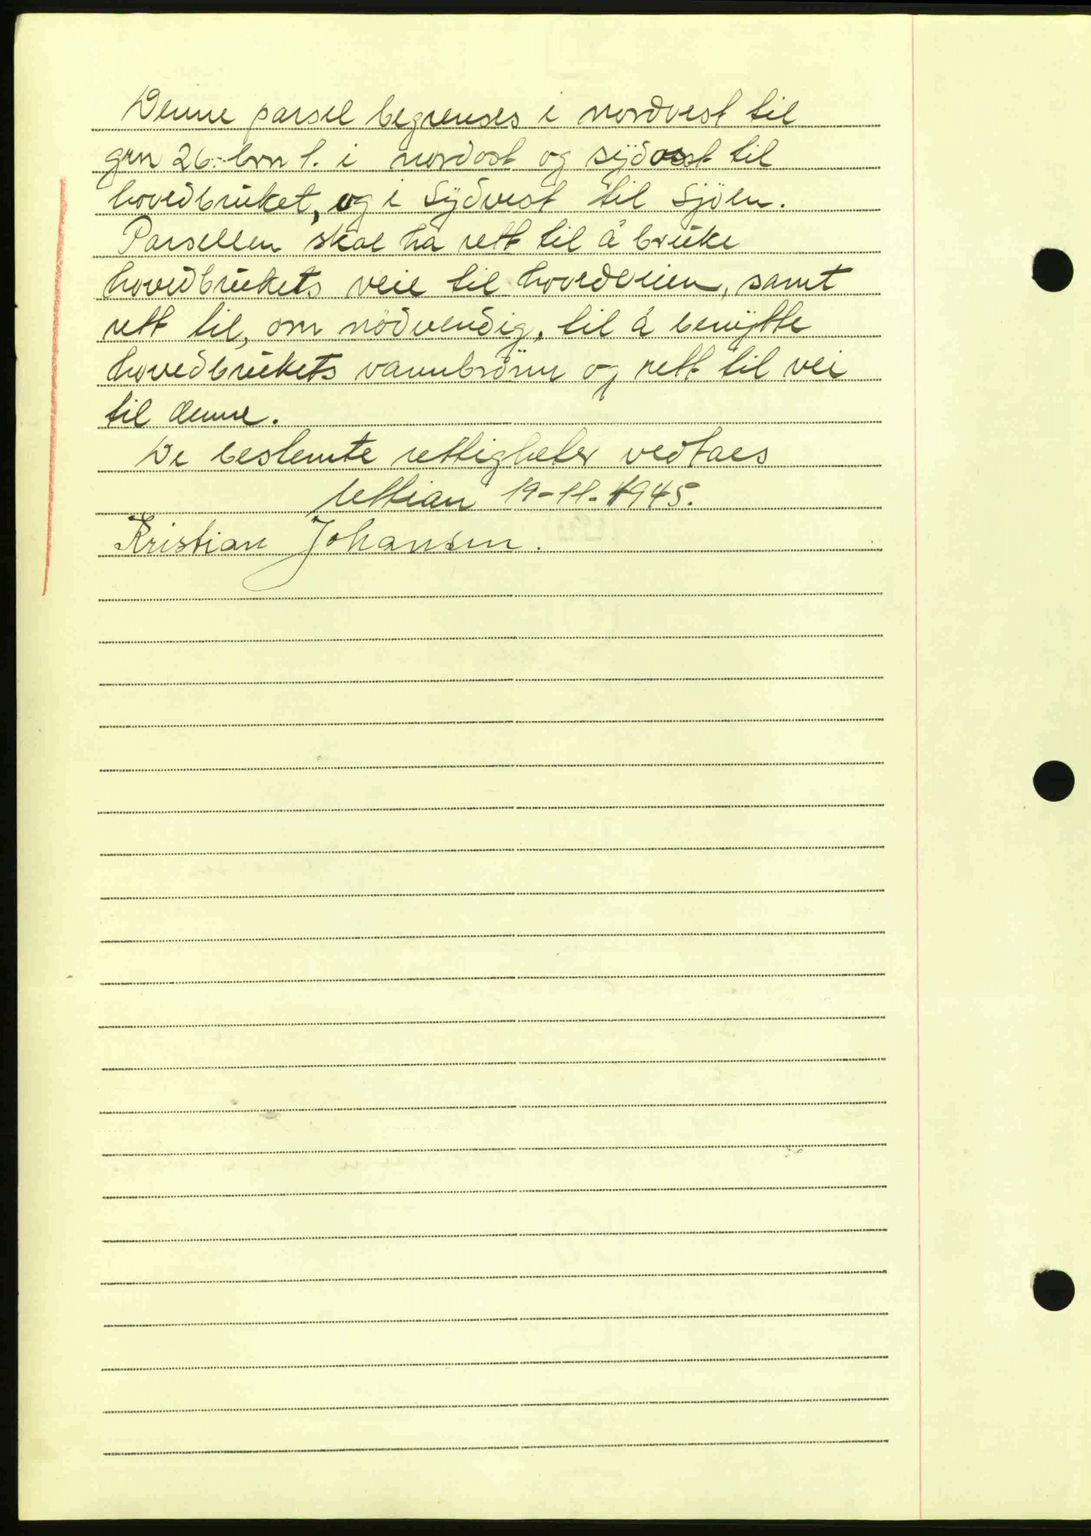 Denne parsel begrenses i nordvest til
grn 26. brn 1. i nordost og sydost til
hovedbruket, og i Sydvest til Sjöen.
Parsellen skal ha rett til å bruke
hovedbrukets veie til hovedveien, samt
rett til, om nödvendig, til å benytte
hovedbrukets vannbrönn og rett til vei
til denne.
De bestemte rettigheter vedtaes
19-11-1945.
Kristian Johansen.